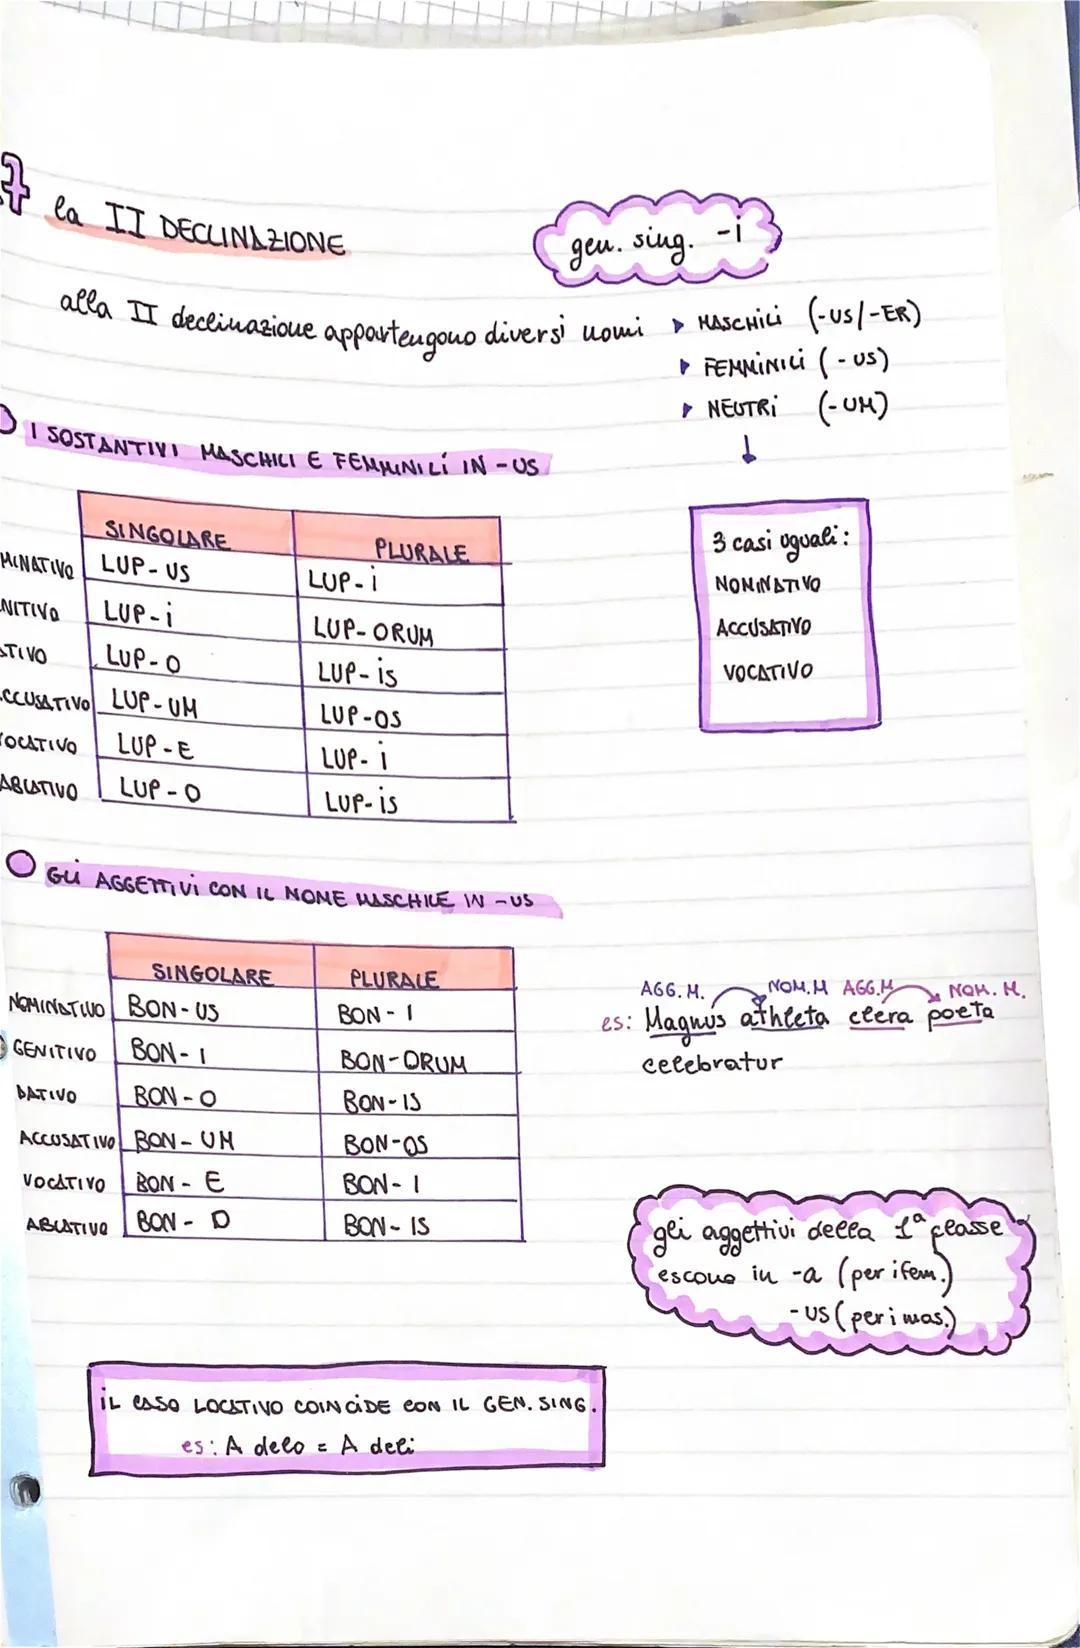 7 la II DECLINAZIONE
gen. sing. -i
alla II declinazione appartengono diversi nomi ▸ MASCHILI (-US/-ER)
▸ FEMMINILI (-US)
▸ NEUTRI (-UM)
↓
I SOSTANTIVI MASCHILI E FEMMINILI IN -US
3 casi uguali:
NOMINATIVO
ACCUSATIVO
VOCATIVO
SINGOLARE PLURALE
MINATIVO LUP-US LUP-i
NITIVO LUP-i LUP-ORUM
ATIVO LUP-O LUP-is
CCUSATIVO LUP-UM LUP-OS
VOCATIVO LUP-E LUP-i
ABLATIVO LUP-O LUP-is
GLI AGGETTIVI CON IL NOME MASCHILE IN -US
SINGOLARE PLURALE
NOMINATIVO BON-US BON-I
GENITIVO BON-I BON-ORUM
DATIVO BON-O BON-IS
ACCUSATIVO BON-UM BON-OS
VOCATIVO BON-E BON-I
ABLATIVO BON-O BON-IS
AGG. M. NOM.M AGG.M NOM. M.
es: Magnus athleta clera poeta
celebratur
gli aggettivi della 1ª classe
escono in -a (per i fem.)
-US (per i mas.)
IL CASO LOCATIVO COINCIDE CON IL GEN. SING.
es: A delo = A deli